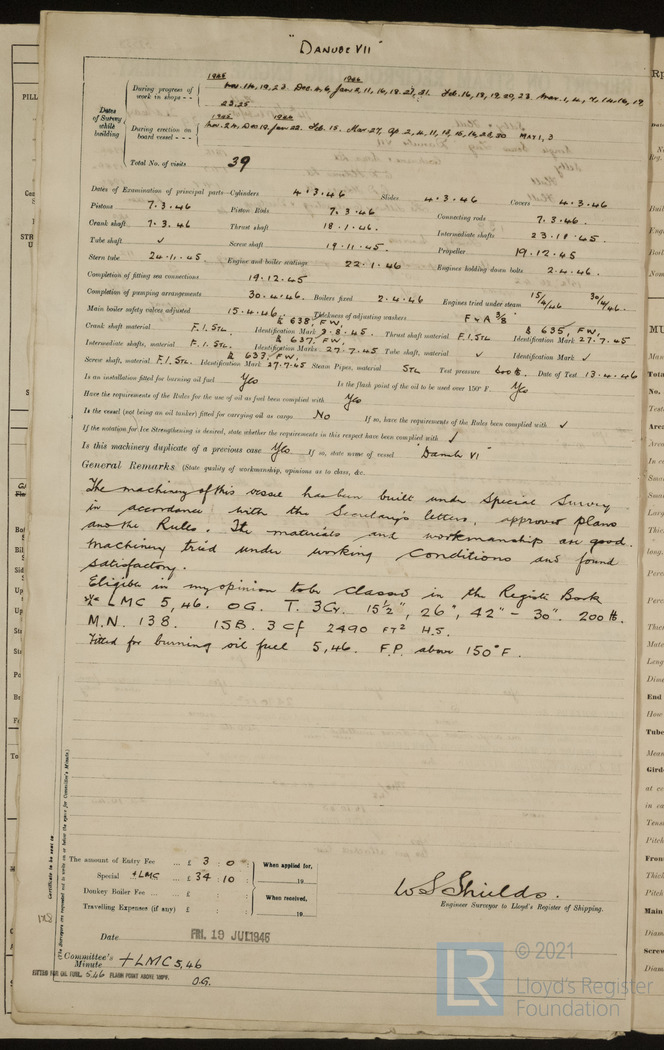 "DANUBE VII"
Dates of Survey while building
During progress of work in shops - -
1945 1946
Nov. 14, 19, 23. Dec. 4, 6, Jan 8, 11, 16, 18. 27, 31. Feb. 16, 18, 19, 20, 23. Mar. 1, 4, 7, 14, 16, 19
23, 25
During erection on board vessel - - -
1945 1946
Nov. 24, Dec 19, Jan 22. Feb. 15. Mar 27, Ap 2, 4, 11, 13, 15, 16, 23, 30 MAY 1, 3
Total No. of visits 39
Dates of Examination of principal parts—Cylinders 4.3.46 Slides 4.3.46 Covers 4.3.46
Pistons 7.3.46 Piston Rods 7.3.46 Connecting rods 7.3.46.
Crank shaft 7.3.46 Thrust shaft 18.1.46. Intermediate shafts 23.10.45.
Tube shaft ✓ Screw shaft 19.11.45. Propeller 19.12.45
Stern tube 24.11.45. Engine and boiler seatings 22.1.46 Engines holding down bolts 2.4.46.
Completion of fitting sea connections 19.12.45
Completion of pumping arrangements 30.4.46. Boilers fixed 2.4.46 Engines tried under steam 15/4/46 30/4/46.
Main boiler safety valves adjusted 15.4.46. Thickness of adjusting washers F & A 3/8
Crank shaft material F.I.STL Identification Mark 638, F.W. 9.8.45. Thrust shaft material F.I.STL Identification Mark 635, F.W. 27.7.45
Intermediate shafts, material F.I.STL. Identification Marks 637, F.W. 27.7.45 Tube shaft, material ✓ Identification Mark ✓
Screw shaft, material F.I.STL. Identification Mark 633, F.W. 27.7.45 Steam Pipes, material STL Test pressure 600 lb. Date of Test 13.4.46
Is an installation fitted for burning oil fuel Yes Is the flash point of the oil to be used over 150° F. Yes
Have the requirements of the Rules for the use of oil as fuel been complied with Yes
Is the vessel (not being an oil tanker) fitted for carrying oil as cargo No If so, have the requirements of the Rules been complied with ✓
If the notation for Ice Strengthening is desired, state whether the requirements in this respect have been complied with ✓
Is this machinery duplicate of a previous case Yes If so, state name of vessel "Danube VI"
General Remarks (State quality of workmanship, opinions as to class, &c.
The machinery of this vessel has been built under Special Survey
in accordance with the Secretary's letters, approved plans
and the Rules. The materials and workmanship are good.
Machinery tried under working conditions and found
satisfactory.
Eligible in my opinion to be classed in the Register Book
LMC 5,46. OG. T. 3Cy. 15½", 26", 42" – 30". 200 lb.
M.N. 138. 1SB. 3 Cf 2490 FT² H.S.
Fitted for burning oil fuel 5,46. F.P. above 150°F.
The amount of Entry Fee ... £ 3 : 0 :
Special +LMC ... £ 34 : 10 :
Donkey Boiler Fee ... £ : :
Travelling Expenses (if any) £ : :
When applied for,
19
When received,
19
W S Shields.
Engineer Surveyor to Lloyd's Register of Shipping.
Date FRI. 19 JUL 1946
Committee's Minute + LMC 5,46
FITTED FOR OIL FUEL 5,46 FLASH POINT ABOVE 150°F.
O.G.
Certificate to be sent to
(The Surveyors are requested not to write on or below the space for Committee's Minute.)
© 2021
LR
Lloyd's Register
Foundation